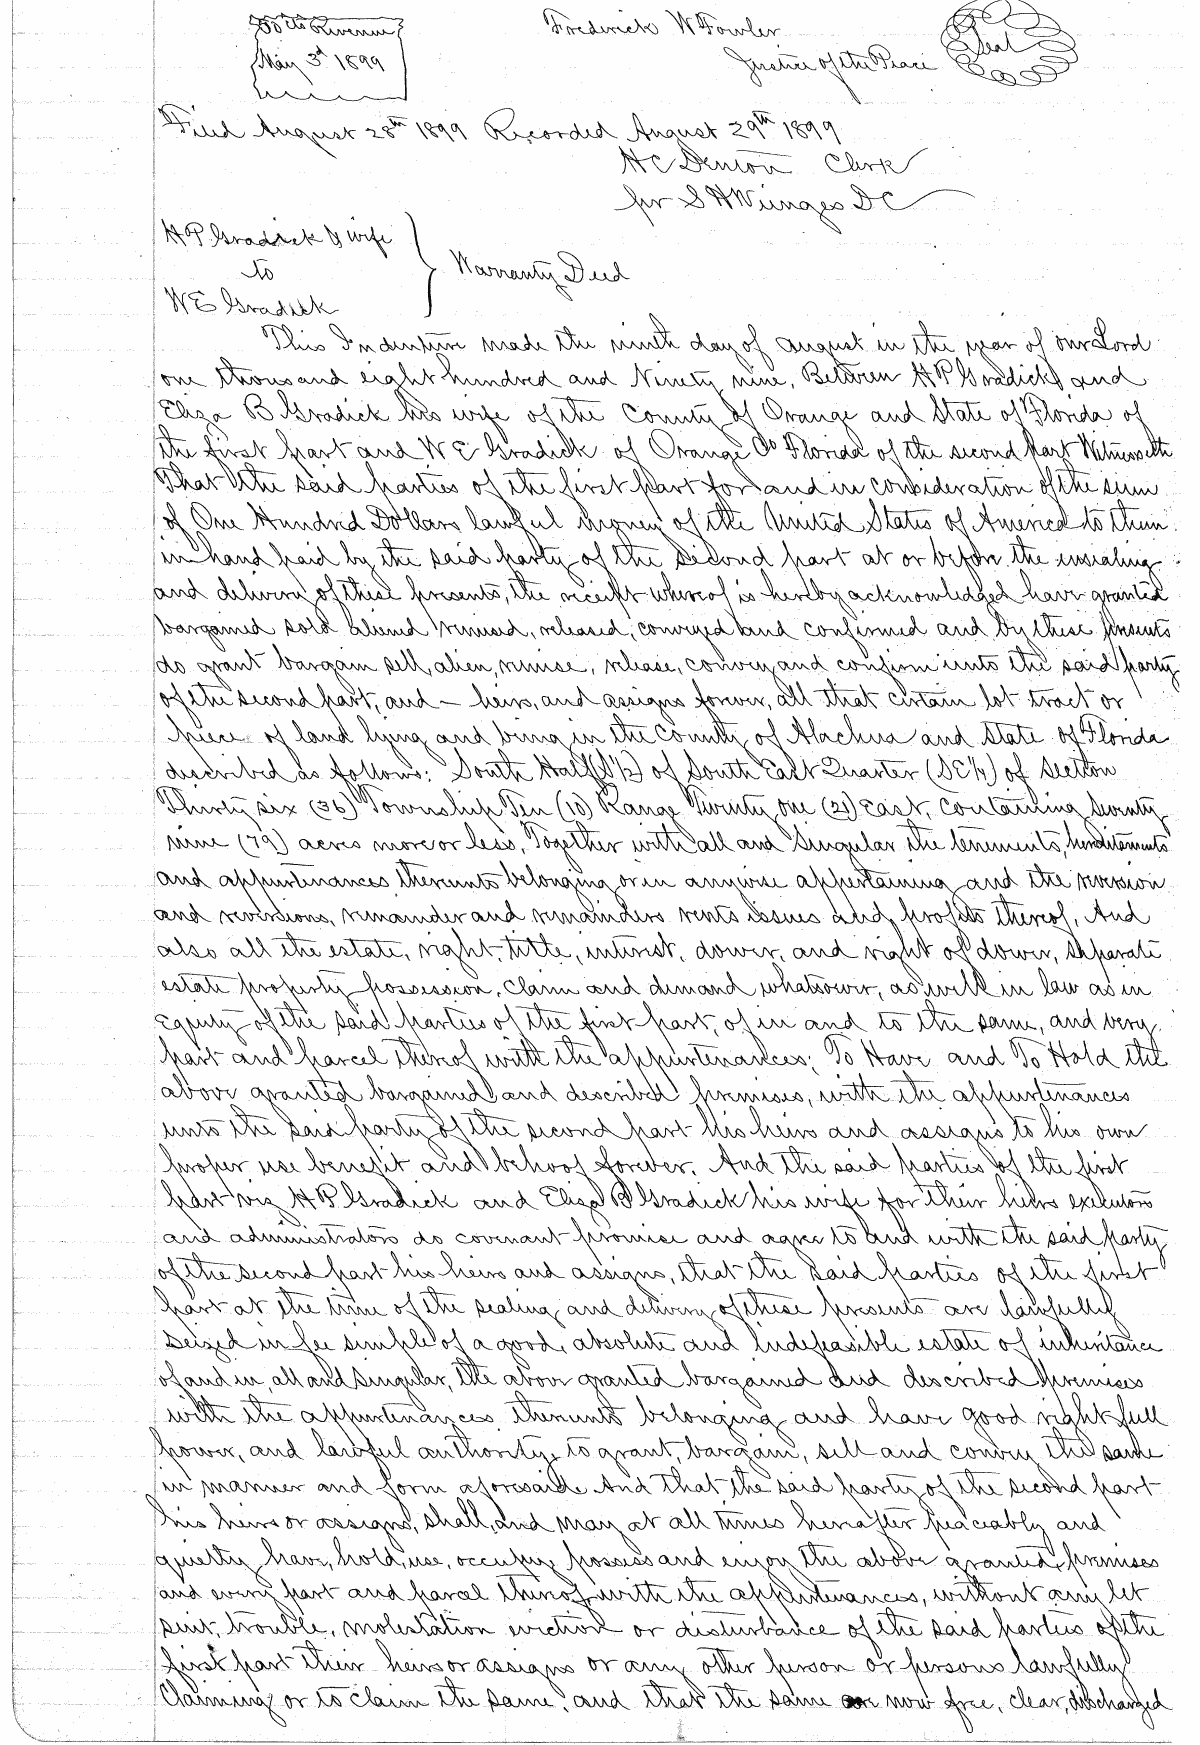 50 cts Revenue
May 3d 1899
Frederick W Fowler
Justice of the Peace
Seal
Filed August 28th 1899 Recorded August 29th 1899
H C Denton Clerk
pr S H Wienges D C
H P Gradick & wife
to
W E Gradick
Warranty Deed
This Indenture made the ninth day of August in the year of our Lord
one thousand eight hundred and Ninety nine, Between H P Gradick and
Eliza B Gradick his wife of the County of Orange and State of Florida of
the first part and W E Gradick of Orange Co Florida of the second part Witnesseth
That the said parties of the first part for and in consideration of the sum
of One Hundred Dollars lawful money of the United States of America to them
in hand paid by the said party of the second part at or before the ensealing
and delivery of these presents, the receipt whereof is hereby acknowledged have granted
bargained sold aliened remised, released, conveyed and confirmed and by these presents
do grant bargain sell, alien, remise, release, convey and confirm unto the said party
of the second part, and — heirs, and assigns forever, all that certain lot tract or
piece of land lying and being in the County of Alachua and State of Florida
described as follows: South Half (S½) of South East Quarter (SE¼) of Section
Thirty six (36) Township Ten (10) Range Twenty one (21) East, Containing Seventy
nine (79) acres more or less, Together with all and Singular the tenements, hereditaments
and appurtenances thereunto belonging or in anywise appertaining and the reversion
and reversions, remainder and remainders rents issues and profits thereof, And
also all the estate, right, title, interest, dower, and right of dower, separate
estate property possession, claim and demand whatsoever, as well in law as in
Equity of the said parties of the first part, of in and to the same, and every
part and parcel thereof with the appurtenances; To Have and To Hold the
above granted bargained and described premises, with the appurtenances
unto the said party of the second part his heirs and assigns to his own
proper use benefit and behoof forever. And the said parties of the first
part viz H P Gradick and Eliza B Gradick his wife for their heirs executors
and administrators do covenant promise and agree to and with the said party
of the second part his heirs and assigns, that the said parties of the first
part at the time of the sealing and delivery of these presents are lawfully
seized in fee simple of a good, absolute and Indefeasible estate of inheritance
of and in, all and singular, the above granted bargained and described premises
with the appurtenances thereunto belonging and have good right full
power, and lawful authority, to grant, bargain, sell and convey the same
in manner and form aforesaid. And that the said party of the second part
his heirs or assigns, shall, and may at all times hereafter peaceably and
quietly have, hold, use, occupy, possess and enjoy the above granted, premises
and every part and parcel thereof with the appurtenances, without any let
suit, trouble, molestation eviction or disturbance of the said parties of the
first part their heirs or assigns or any other person or persons lawfully
Claiming or to claim the same, and that the same are now free, clear, discharged